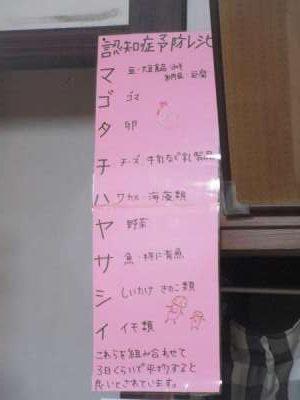 認知症予防レシピ
マ 豆・大豆食品 みそ
納豆・豆腐
ゴ ゴマ
タ 卵
チ チーズ 牛乳など乳製品
ハ ワカメ 海藻類
ヤ 野菜
サ 魚・特に青魚
シ しいたけ きのこ類
イ イモ類
これらを組み合わせて
3日くらいで平均すると
良いとされています。